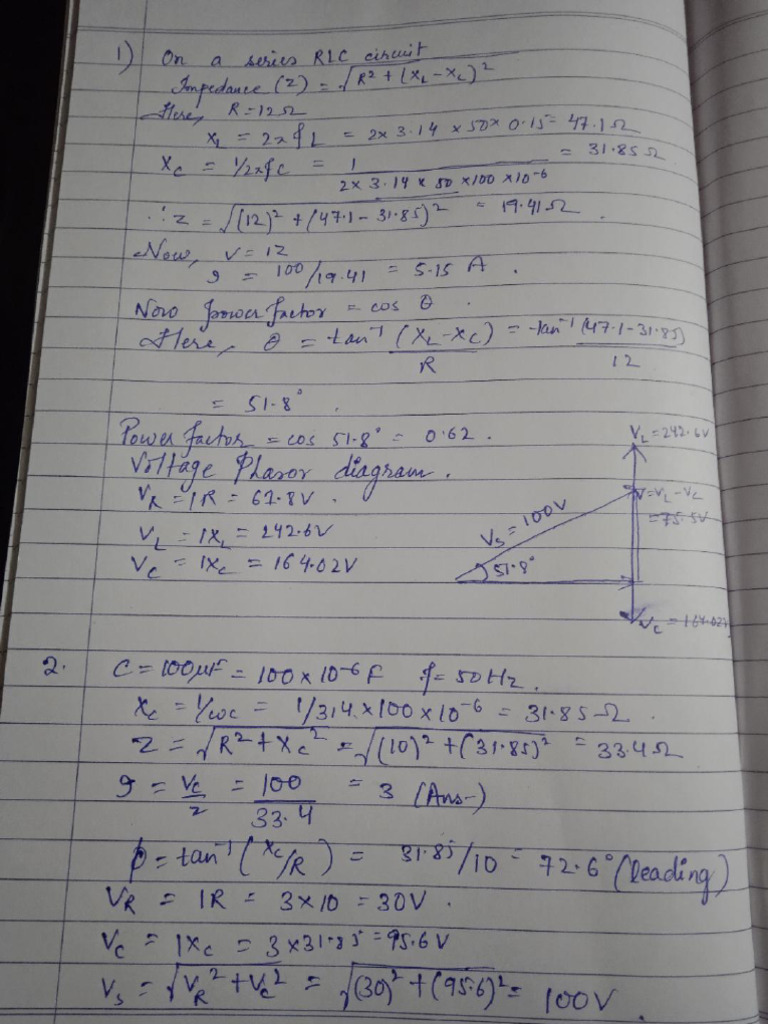 1) On a series RLC circuit
Impedance (Z) = √R² + (XL - XC)²
Here, R = 12Ω
XL = 2πfL = 2x 3.14 x 50x 0.15 = 47.1Ω
XC = 1/2πfC = 1 / 2x 3.14 x 50 x100 x10-6 = 31.85 Ω
∴ Z = √(12)² + (47.1 - 31.85)² = 19.41Ω
Now, V = IZ
I = 100/19.41 = 5.15 A .
Now power factor = cos θ .
Here, θ = tan-1 (XL - XC) / R = tan-1 (47.1 - 31.85) / 12
= 51.8° .
Power factor = cos 51.8° = 0.62 .
Voltage Phasor diagram .
VR = IR = 62.8V .
VL = IXL = 242.6V
VC = IXC = 164.02V
VL = 242.6V
V = VL - VC
= 75.5V
VS = 100V
51.8°
2. C = 100μF = 100 x 10-6 F f = 50Hz .
XC = 1/ωC = 1/314 x 100 x 10-6 = 31.85 Ω .
Z = √R² + XC² = √(10)² + (31.85)² = 33.4Ω
I = VC / Z = 100 / 33.4 = 3 (Ans-)
φ = tan-1 (XC/R) = 31.85/10 = 72.6° (leading)
VR = IR = 3 x 10 = 30V .
VC = IXC = 3 x 31.85 = 95.6V
VS = √VR² + VC² = √(30)² + (95.6)² = 100V .